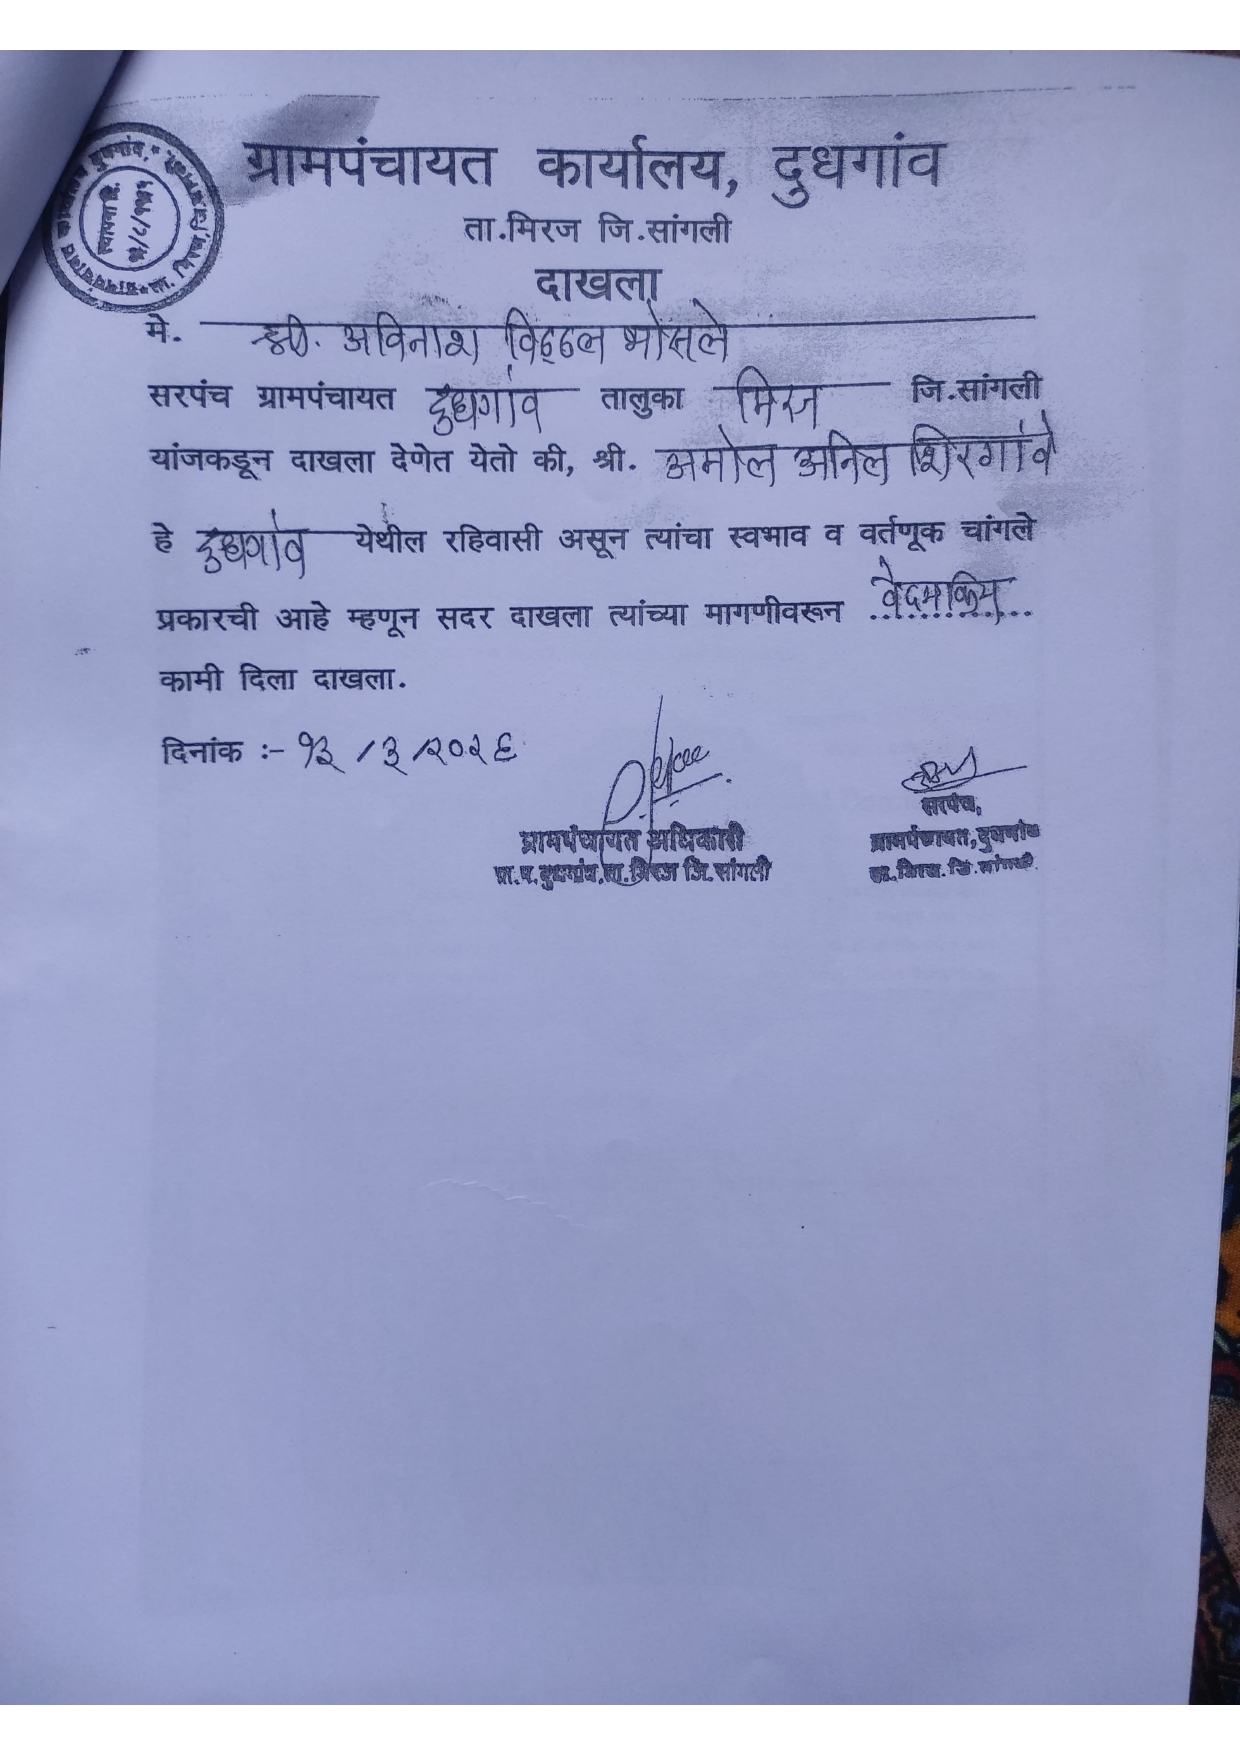 ग्रामपंचायत कार्यालय, दुधगांव
ता.मिरज जि.सांगली
दाखला
मे. श्री. अविनाश विठ्ठल भोसले
सरपंच ग्रामपंचायत दुधगांव तालुका मिरज जि.सांगली
यांजकडून दाखला देणेत येतो की, श्री. अमोल अनिल शिरगांवे
हे दुधगांव येथील रहिवासी असून त्यांचा स्वभाव व वर्तणूक चांगले
प्रकारची आहे म्हणून सदर दाखला त्यांच्या मागणीवरून
कामी दिला दाखला.
दिनांक :- १३/३/२०२६
ग्रामपंचायत अधिकारी
ग्रा.पं.दुधगांव,ता.मिरज जि.सांगली
सरपंच,
ग्रामपंचायत,दुधगांव
ता.मिरज.जि.सांगली